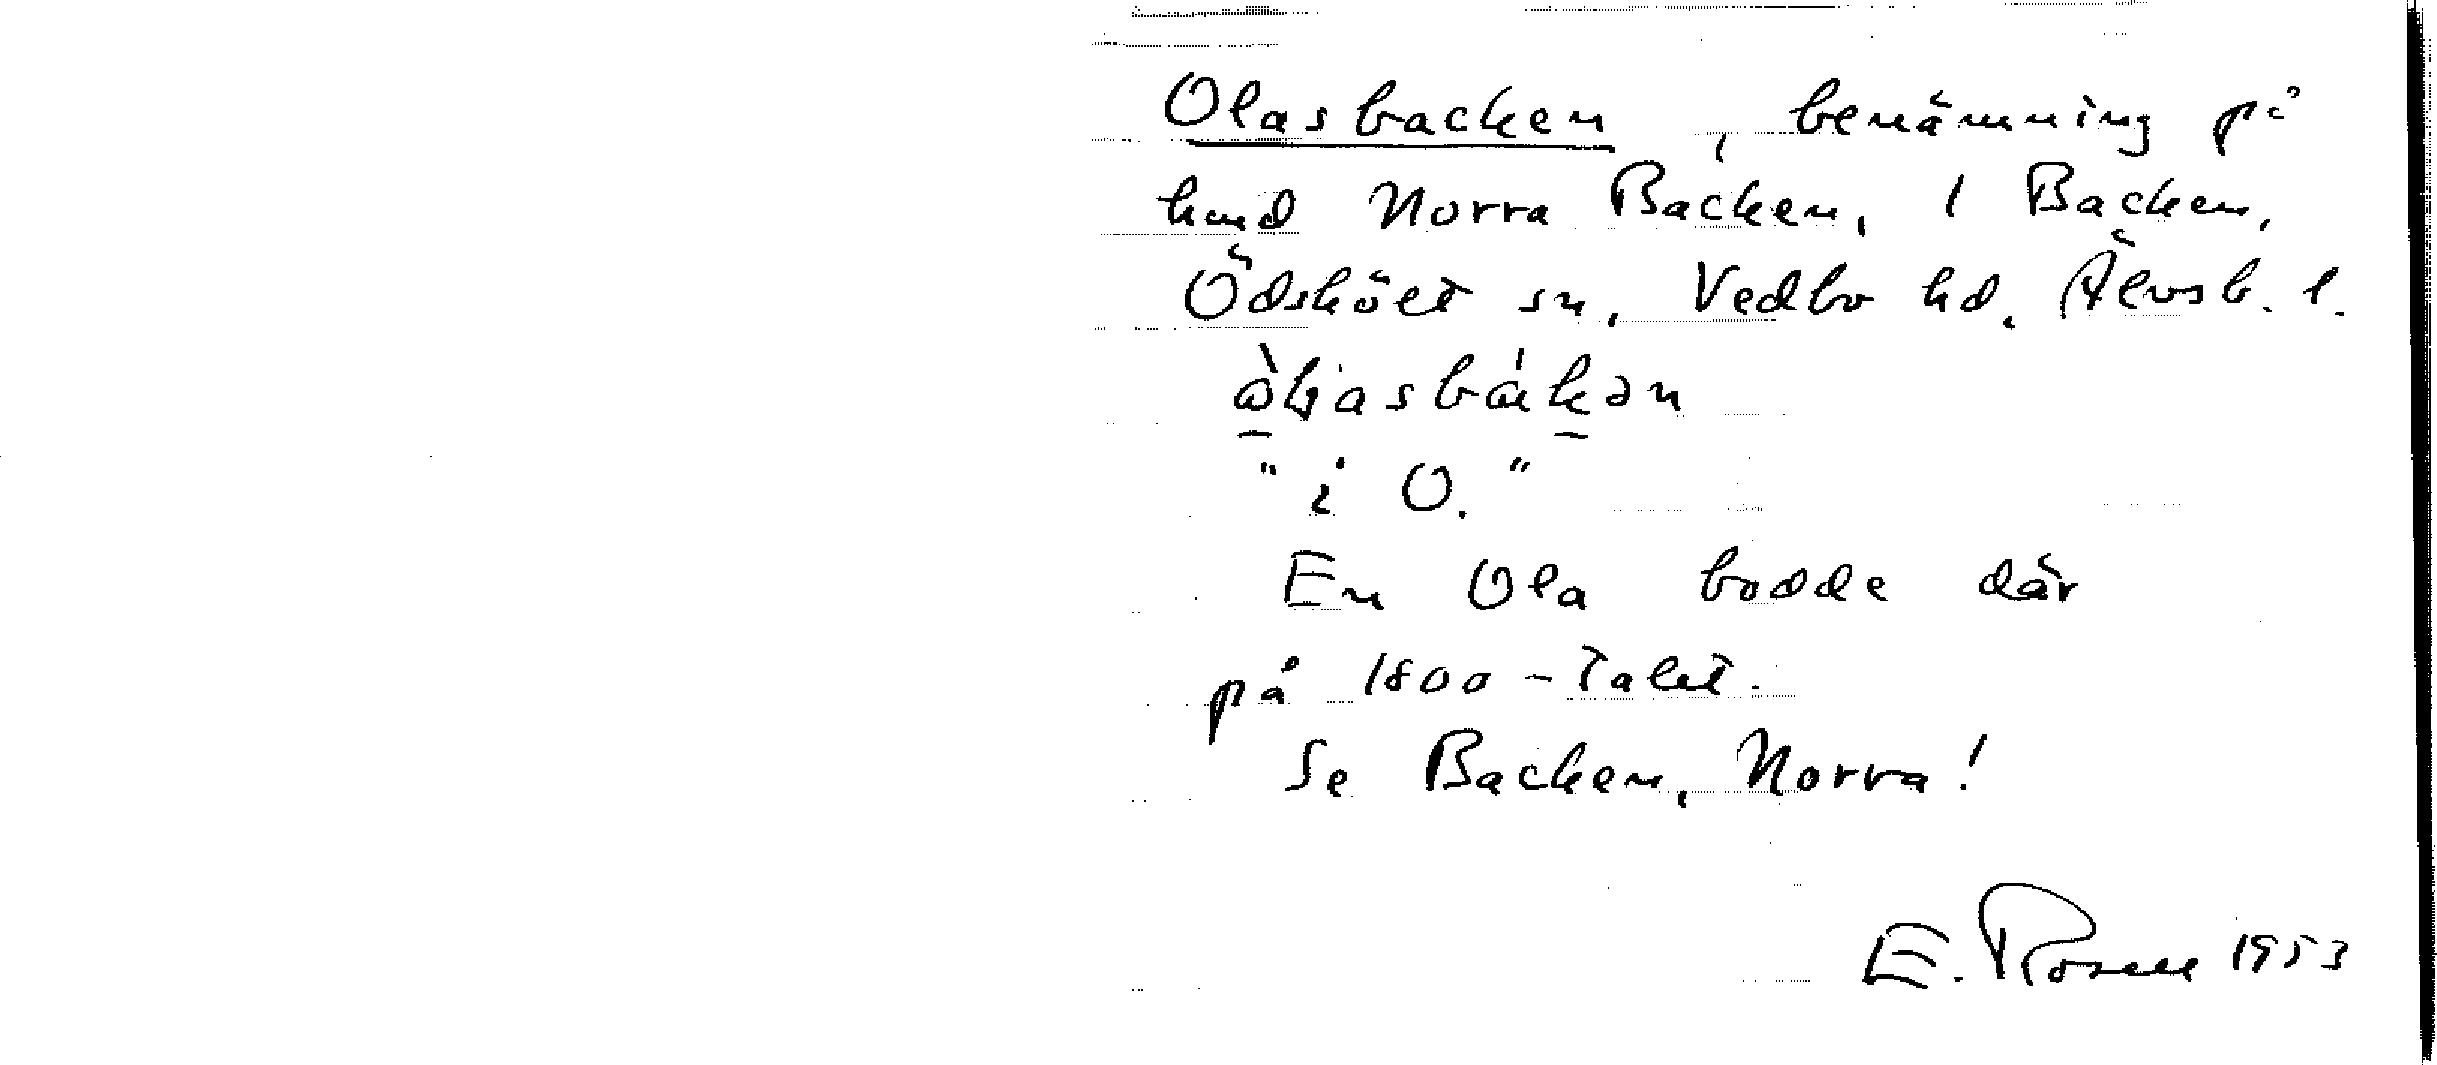 Olasbacken, benämning på
hmd Norra Backen, 1 Backen,
Ödsköet sn, Vedbo hd, Älvsb. l.
"i O."
En Ola bodde där
på 1800-talet.
Se Backen, Norra!
E. Rosell 1953